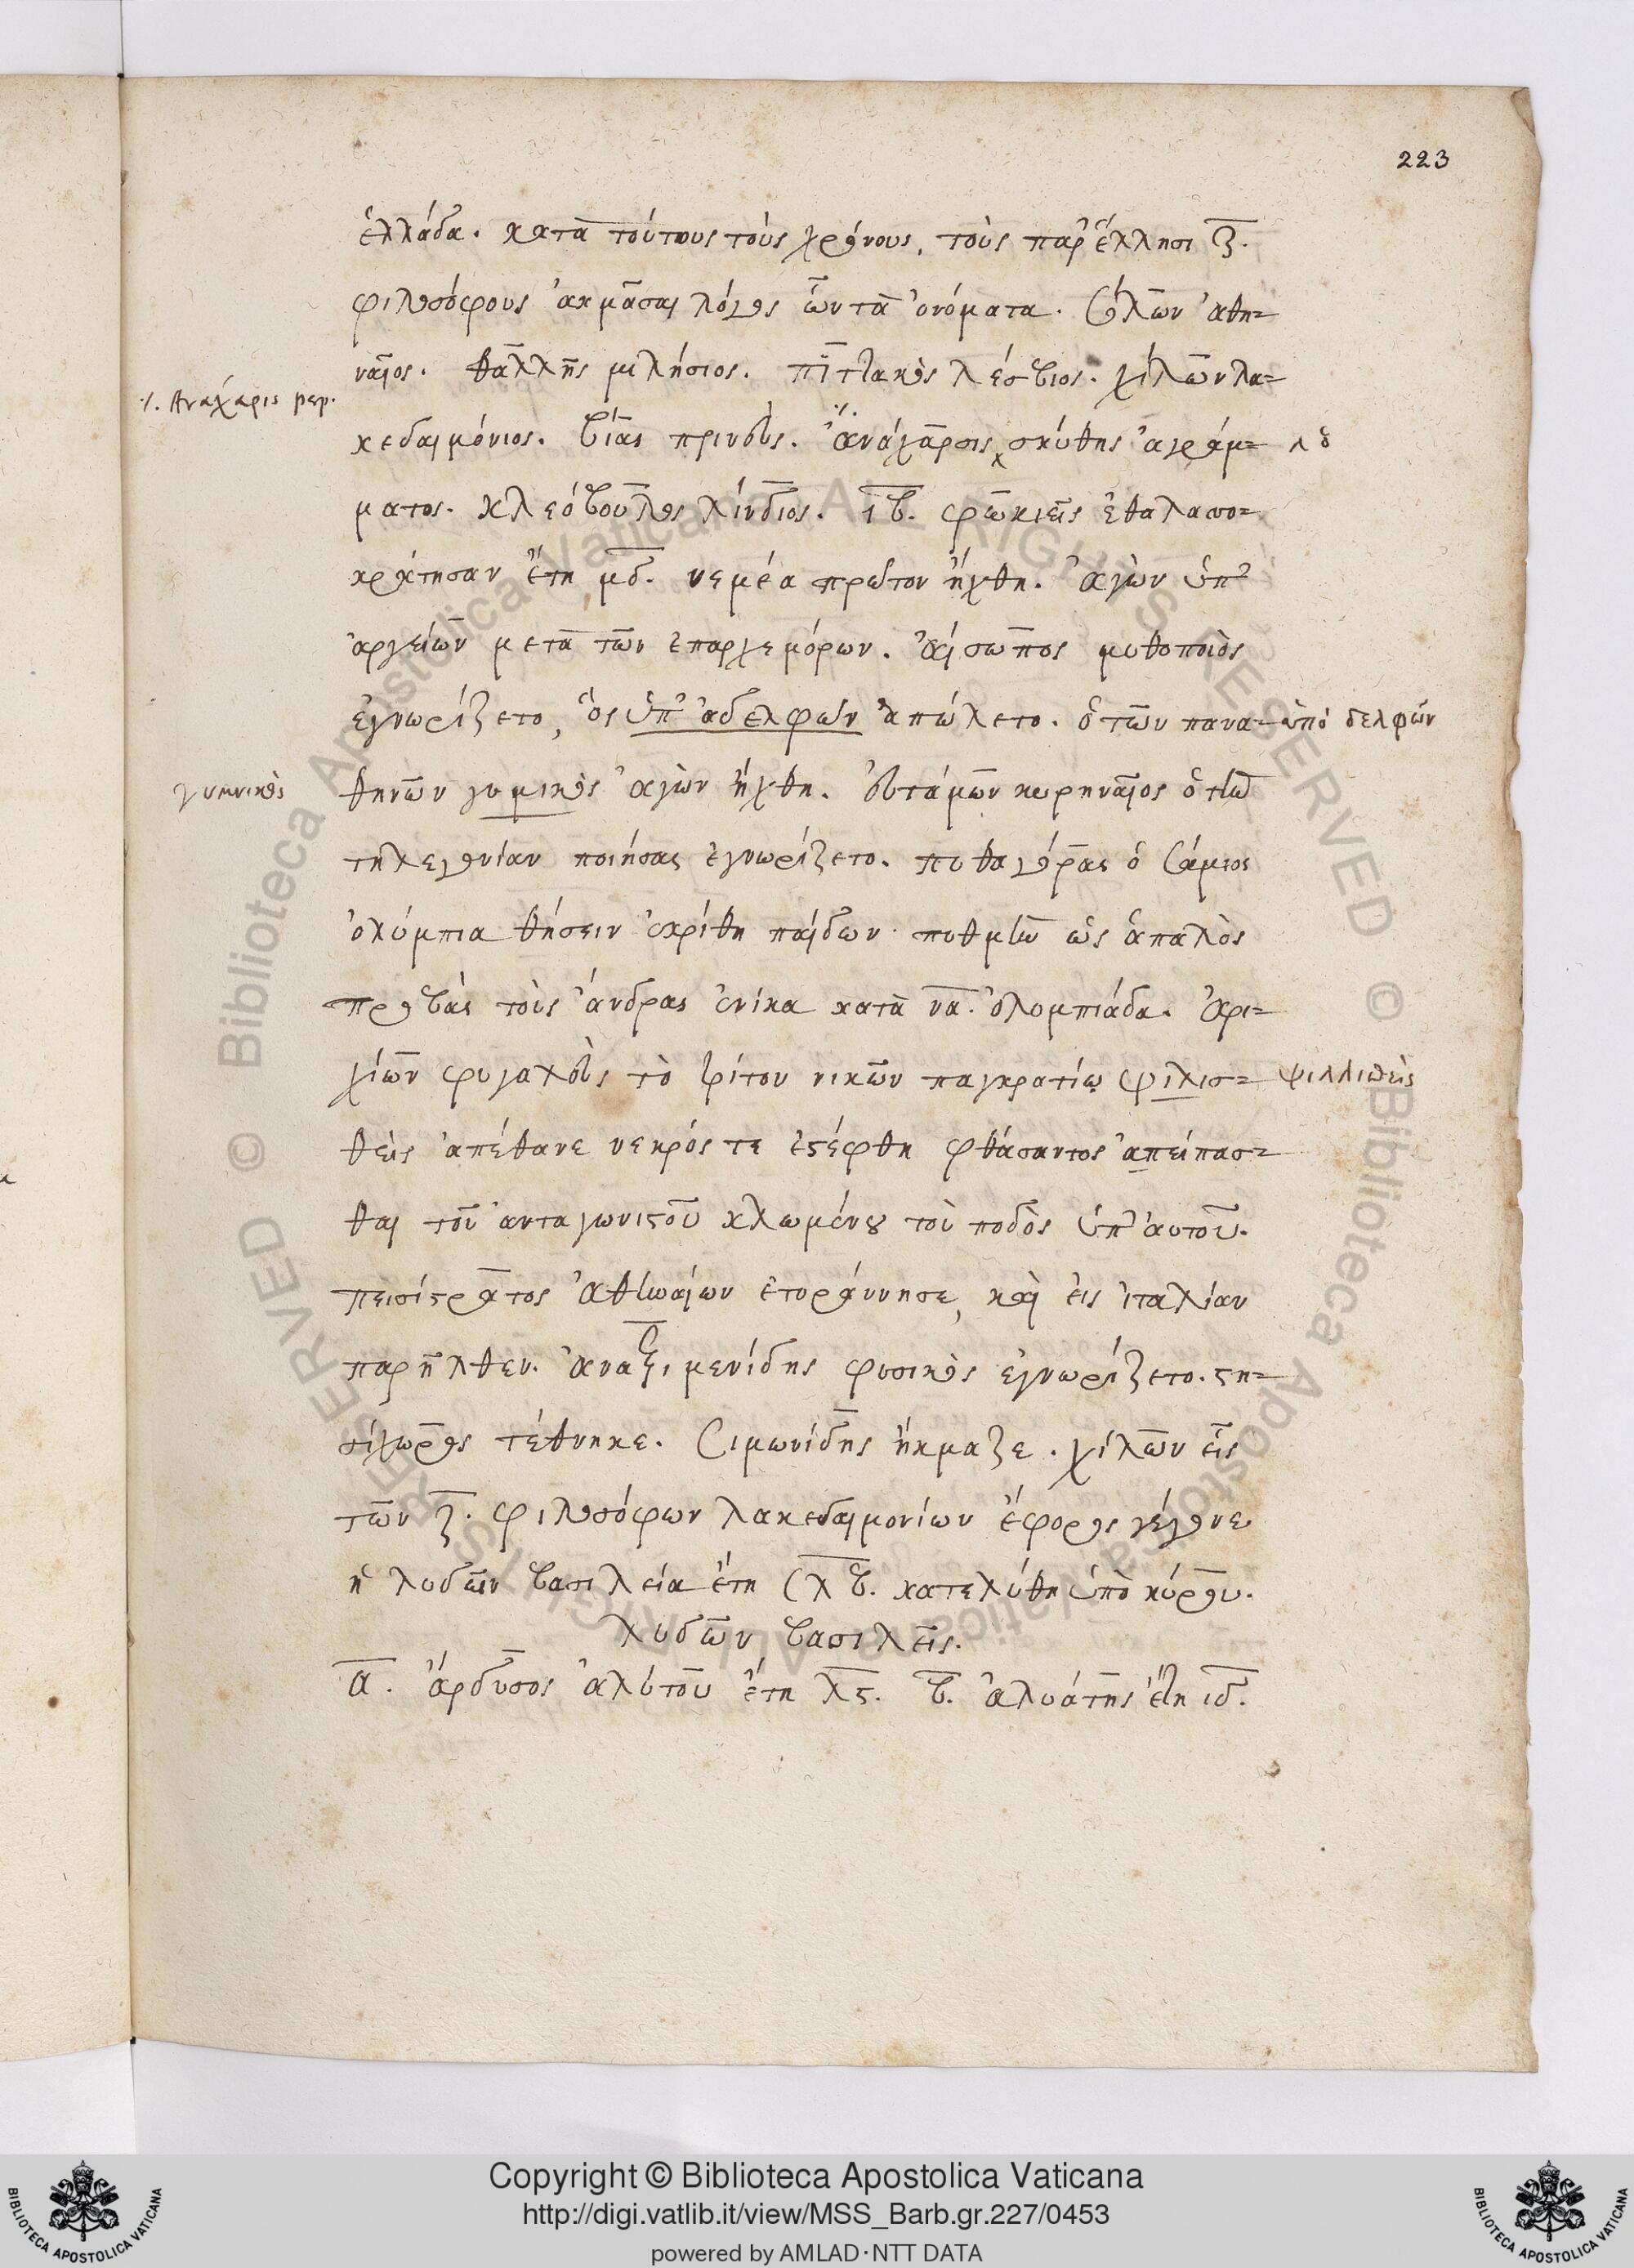 223
ἑλλάδα. κατὰ τούτους τοὺς χρόνους, τοὺς παρ' ἕλλησι ζ.
φιλοσόφους ἀκμᾶσαι λόγος ὧν τὰ ὀνόματα. Σόλων ἀθη=
ναῖος. θαλλῆς μιλήσιος. πιττακὸς λέσβιος. χίλων λα=
·/. Ἀναχάρις
κεδαιμόνιος. βίας πρινεὺς. ἀνάχαρσις σκύθης ἀγράμ=
ματος. κλεόβουλος λίνδιος. ιβ. φωκιεῖς ἐθαλασσο=
κράτησαν ἔτη μδ. νεμέα πρῶτον ἤχθη. ἀγὼν ὑπ'
ἀργείων μετὰ τῶν ἐπαρχεμόρων. αἴσωπος μυθοποιὸς
ἐγνωρίζετο, ὃς ὑπ' ἀδελφῶν ἀπώλετο. ὁ τῶν πανα= ὑπὸ δελφῶν
γυμνικὸς
θηνῶν γυμικὸς ἀγὼν ἤχθη. εὐτάμων κυρηναῖος ὁ τὴν
τηλεγονίαν ποιήσας ἐγνωρίζετο. πυθαγόρας ὁ Σάμιος
ὀλύμπια θήσειν ἐκρίθη παίδων πυθμὴν ὡς ἁπαλὸς
προβὰς τοὺς ἄνδρας ἐνίκα κατὰ να. ὀλυμπιάδα. ἀρι=
χίων φυγαλεὺς τὸ τρίτον νικῶν παγκρατίῳ φιλισ= ψιλλισθεὶς
θεὶς ἀπέθανε νεκρός τε ἐστέφθη φθάσαντος ἀπείπασ=
θαι τοῦ ἀνταγωνιστοῦ κλωμένου τοῦ ποδὸς ὑπ' αὐτοῦ.
πεισίστρατος ἀθηναίων ἐτυράννησε, καὶ εἰς ἰταλίαν
παρῆλθεν. ἀναξιμενίδης φυσικὸς ἐγνωρίζετο. στη=
σίχωρος τέθνηκε. Σιμωνίδης ἤκμαζε. χίλων εἷς
τῶν ζ. φιλοσόφων λακεδαιμονίων ἔφορος γέγονε
ἡ λυδῶν βασιλεία ἔτη σλβ. κατελύθη ὑπὸ κύρου.
λυδῶν βασιλεῖς.
α. ἄρδυσος ἀλύτου ἔτη λς. β. ἀλυάτης ἔτη ιδ.
Copyright © Biblioteca Apostolica Vaticana
http://digi.vatlib.it/view/MSS_Barb.gr.227/0453
powered by AMLAD·NTT DATA